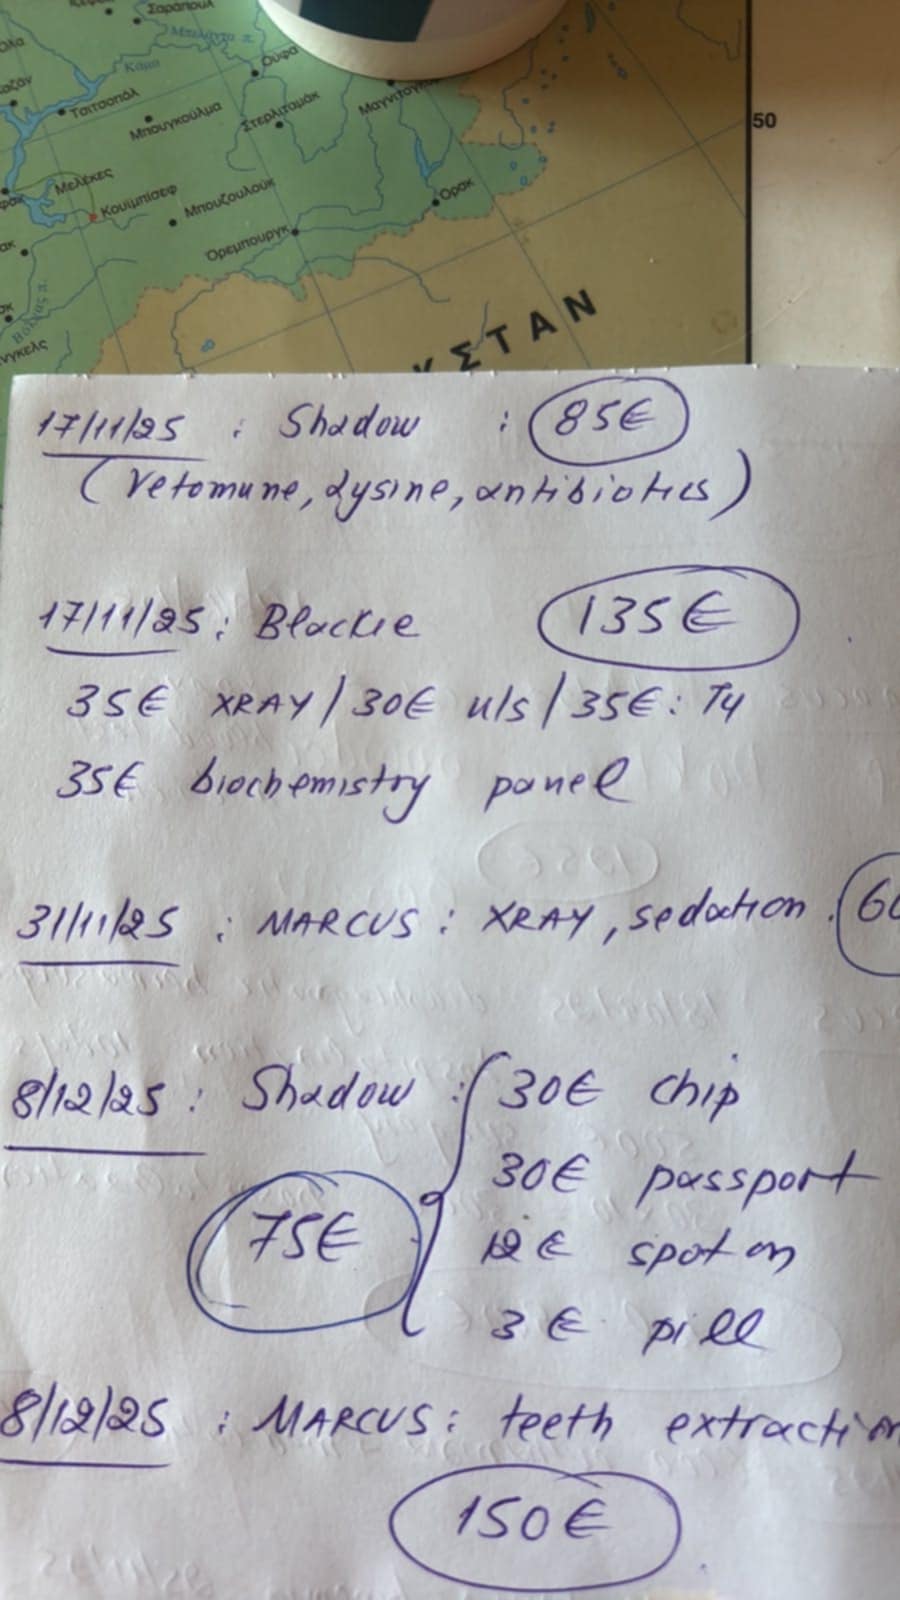 Σαραπούλ
Μπελάγια π.
Κάμα
Ούφα
Τσιτσοπόλ
Μπουγκούλμα
Στερλιταμάκ
Μελεκές
Κουϊμπίσεφ
Μπουζουλούκ
Ορσκ
Όρεμπουργκ
50
ΣΤΑΝ
17/11/25 : Shadow : 85€
(Vetomune, Lysine, antibiotics)
17/11/25 : Blackie 135€
35€ XRAY / 30€ u/s / 35€ : T4
35€ biochemistry panel
31/11/25 : MARCUS : XRAY, sedation.
8/12/25 : Shadow : 30€ chip
30€ passport
75€ 12€ spot on
3€ pill
8/12/25 : MARCUS : teeth extraction
150€